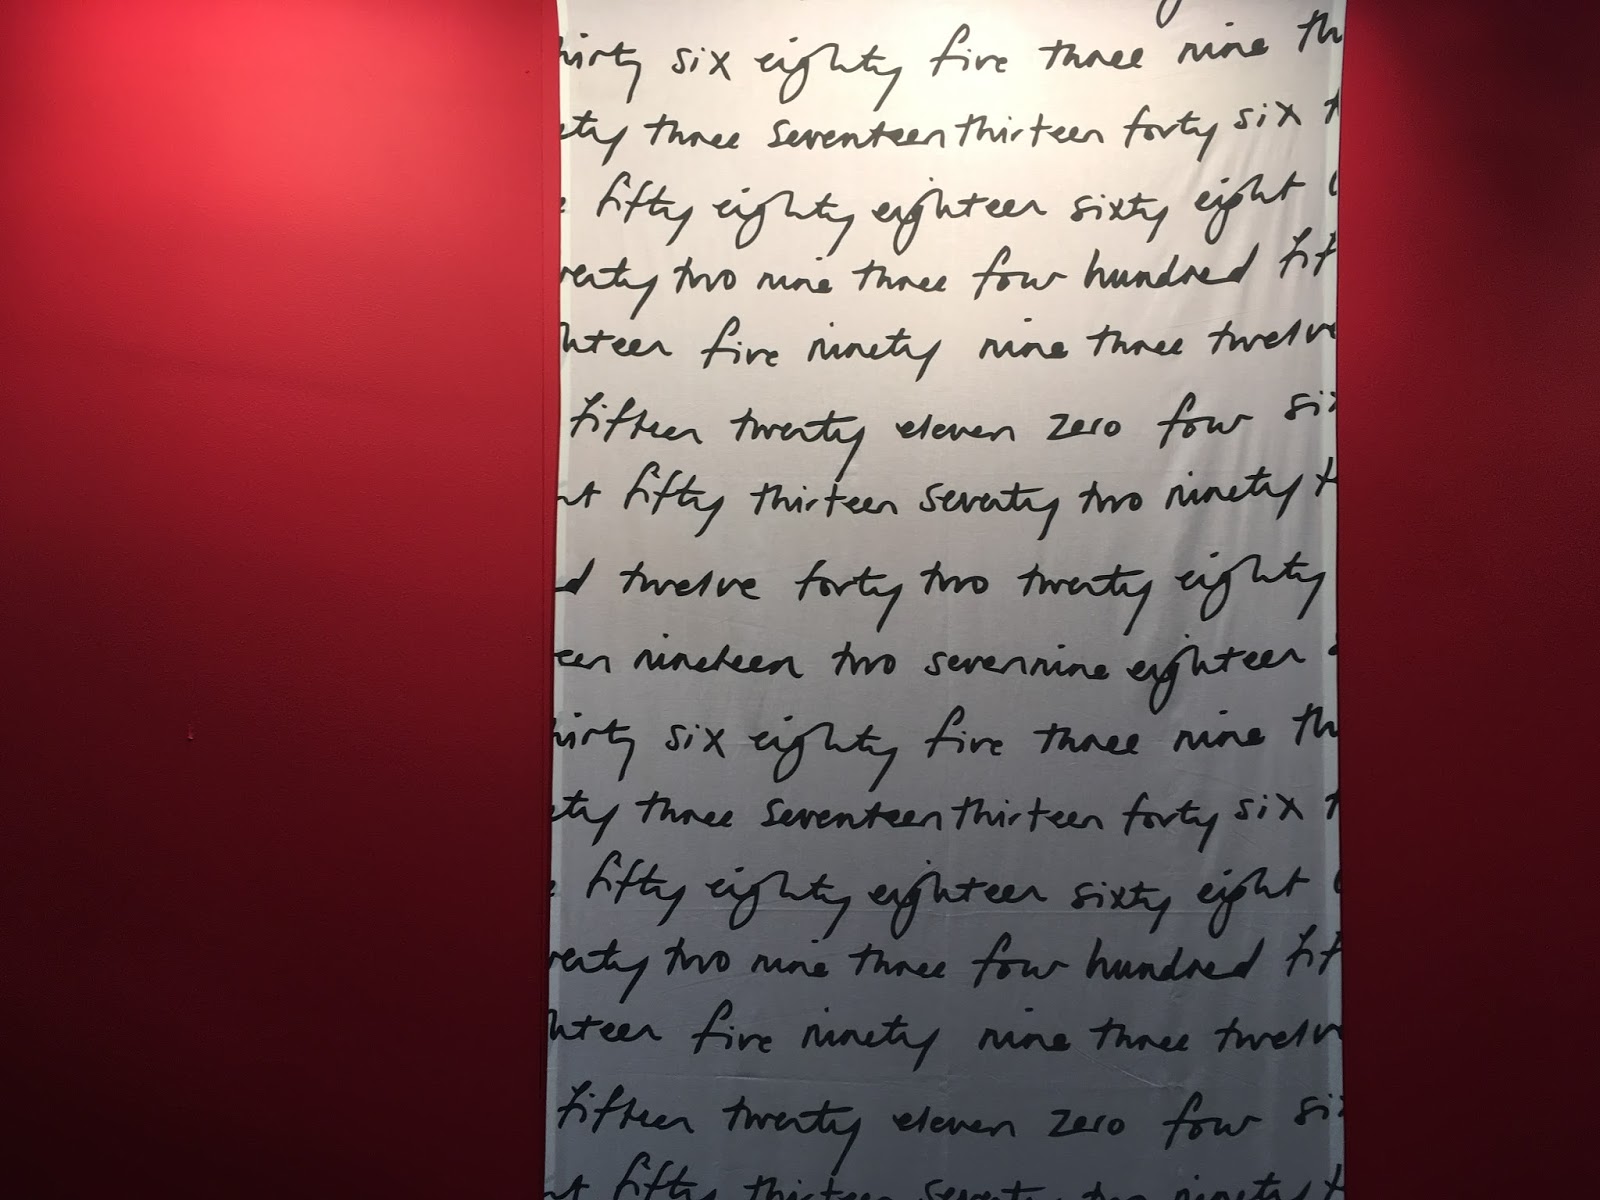 hirty six eighty five three nine th
ety three seventeen thirteen forty six t
e fifty eighty eighteen sixty eight
venty two nine three four hundred fif
hteen five ninety nine three twelv
fifteen twenty eleven zero four six
ht fifty thirteen seventy two ninety t
d twelve forty two twenty eighty
een nineteen two seven nine eighteen
hirty six eighty five three nine th
ety three seventeen thirteen forty six t
e fifty eighty eighteen sixty eight
venty two nine three four hundred fif
hteen five ninety nine three twelv
fifteen twenty eleven zero four six
ht fifty thirteen seventy two ninety t